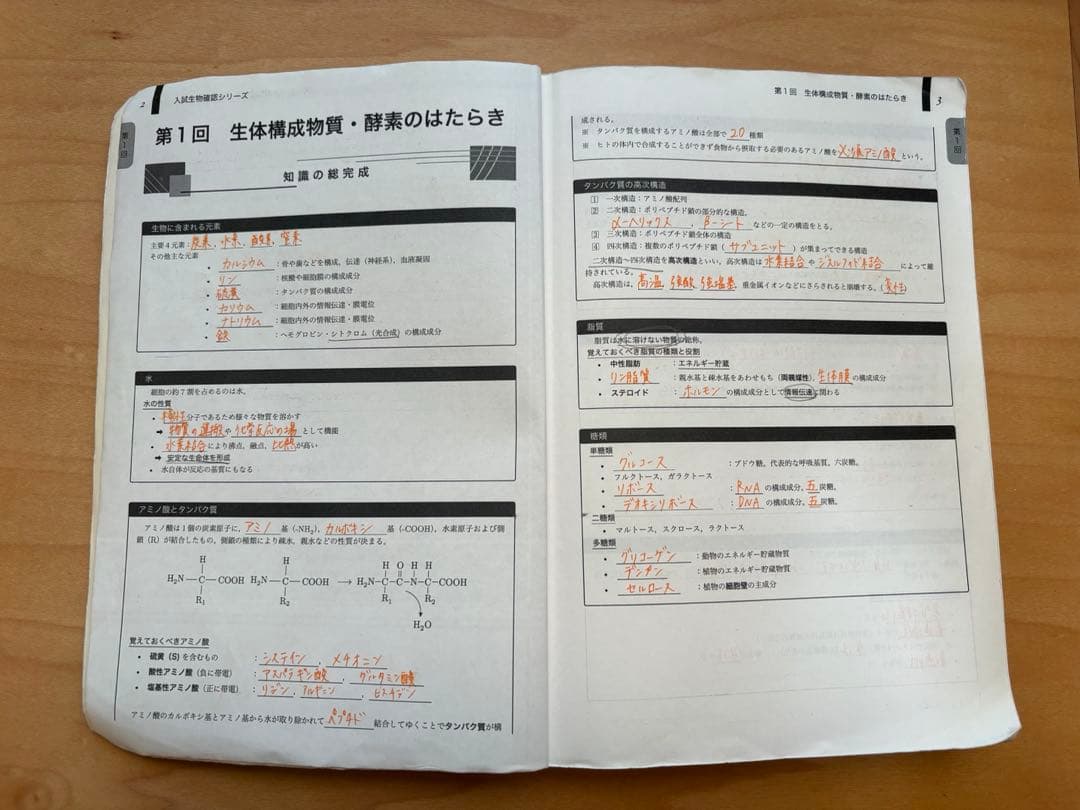 2 入試生物確認シリーズ
第1回
第1回 生体構成物質・酵素のはたらき
知識の総完成
生物に含まれる元素
主要4元素:炭素、水素、酸素、窒素
その他主な元素
• カルシウム :骨や歯などを構成、伝達(神経系)、血液凝固
• リン :核酸や細胞膜の構成成分
• 硫黄 :タンパク質の構成成分
• カリウム :細胞内外の情報伝達・膜電位
• ナトリウム :細胞内外の情報伝達・膜電位
• 鉄 :ヘモグロビン・シトクロム(光合成)の構成成分
水
細胞の約7割を占めるのは水。
水の性質
• 極性分子であるため様々な物質を溶かす
➡ 物質の運搬や化学反応の場として機能
• 水素結合により沸点、融点、比熱が高い
➡ 安定な生命体を形成
• 水自体が反応の基質にもなる
アミノ酸とタンパク質
アミノ酸は1個の炭素原子に、アミノ基(-NH₂)、カルボキシ基(-COOH)、水素原子および側
鎖(R)が結合したもの。側鎖の種類により疎水、親水などの性質が決まる。
H H H O H H
H₂N—C—COOH H₂N—C—COOH → H₂N—C—C—N—C—COOH
R₁ R₂ R₁ R₂
H₂O
覚えておくべきアミノ酸
• 硫黄(S)を含むもの :システイン、メチオニン
• 酸性アミノ酸(負に帯電) :アスパラギン酸、グルタミン酸
• 塩基性アミノ酸(正に帯電) :リジン、アルギニン、ヒスチジン
アミノ酸のカルボキシ基とアミノ基から水が取り除かれてペプチド結合してゆくことでタンパク質が構
第1回 生体構成物質・酵素のはたらき 3
第1回
成される。
※ タンパク質を構成するアミノ酸は全部で20種類
※ ヒトの体内で合成することができず食物から摂取する必要のあるアミノ酸を必須アミノ酸という。
タンパク質の高次構造
1 一次構造:アミノ酸配列
2 二次構造:ポリペプチド鎖の部分的な構造。
α-ヘリックス、β-シートなどの一定の構造をとる。
3 三次構造:ポリペプチド鎖全体の構造
4 四次構造:複数のポリペプチド鎖(サブユニット)が集まってできる構造
二次構造〜四次構造を高次構造といい、高次構造は水素結合やジスルフィド結合によって維
持されている。
高次構造は、高温 強酸 強塩基、重金属イオンなどにさらされると崩壊する。(変性)
脂質
脂質は水に溶けない物質の総称。
覚えておくべき脂質の種類と役割
• 中性脂肪 :エネルギー貯蔵
• リン脂質 :親水基と疎水基をあわせもち(両親媒性)、生体膜の構成成分
• ステロイド :ホルモンの構成成分として情報伝達に関わる
糖類
単糖類
• グルコース :ブドウ糖。代表的な呼吸基質。六炭糖。
• フルクトース、ガラクトース
• リボース :RNAの構成成分。五炭糖。
• デオキシリボース :DNAの構成成分。五炭糖。
二糖類
• マルトース、スクロース、ラクトース
多糖類
• グリコーゲン :動物のエネルギー貯蔵物質
• デンプン :植物のエネルギー貯蔵物質
• セルロース :植物の細胞壁の主成分